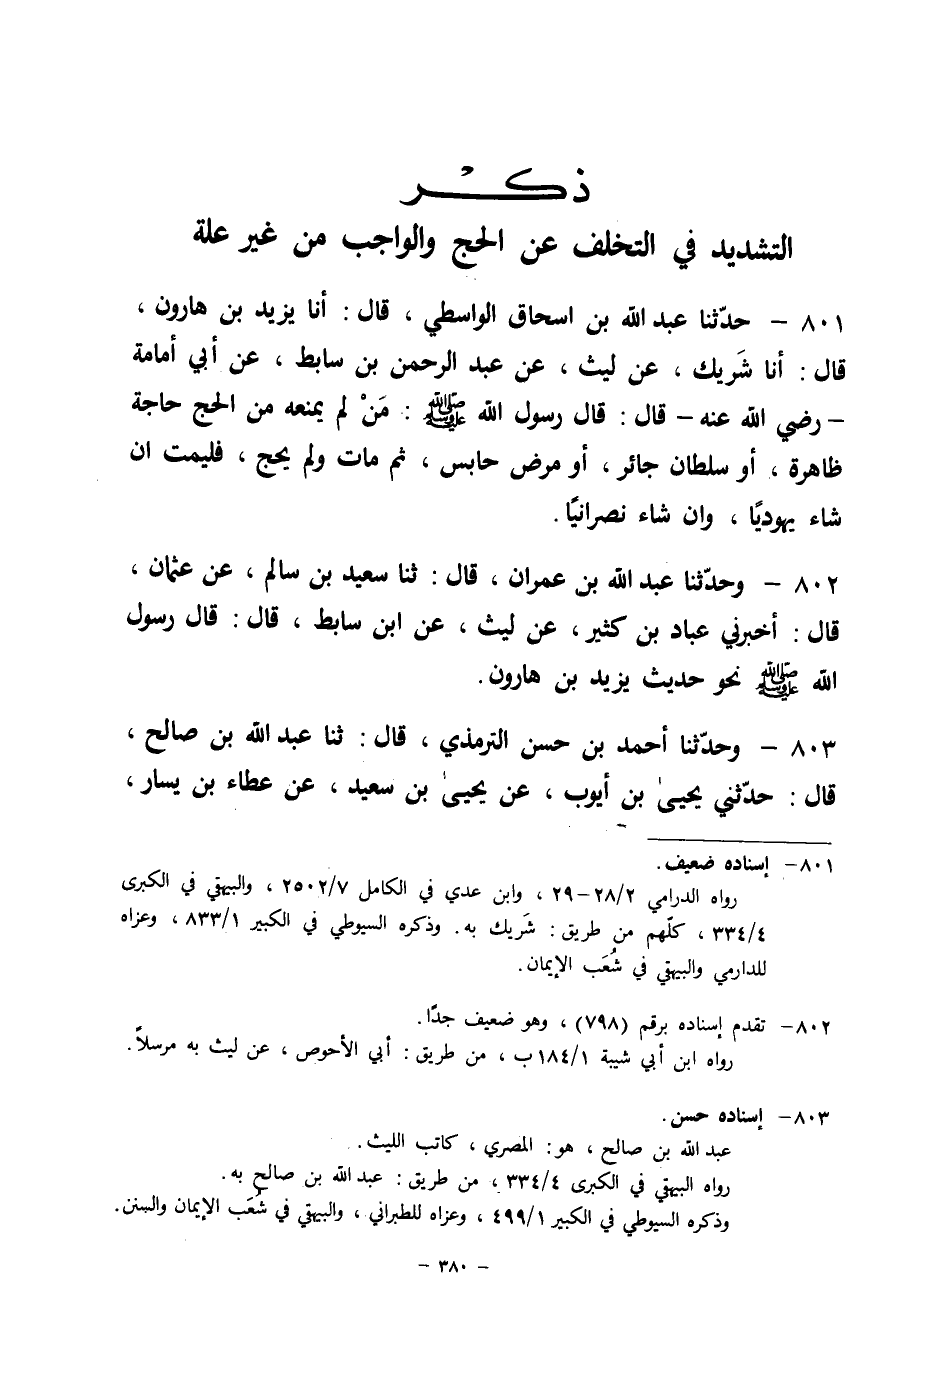 ذكر
التشديد في التخلف عن الحج والواجب من غير علة
٨٠١ – حدّثنا عبد الله بن اسحاق الواسطي ، قال : أنا يزيد بن هارون ،
قال : أنا شَريك ، عن ليث ، عن عبد الرحمن بن سابط ، عن أبي أمامة
– رضي الله عنه – قال : قال رسول الله ﷺ : مَنْ لم يمنعه من الحج حاجة
ظاهرة ، أو سلطان جائر ، أو مرض حابس ، ثم مات ولم يحج ، فليمت ان
شاء يهوديًا ، وان شاء نصرانيًا .
٨٠٢ – وحدّثنا عبد الله بن عمران ، قال : ثنا سعيد بن سالم ، عن عثمان ،
قال : أخبرني عباد بن كثير ، عن ليث ، عن ابن سابط ، قال : قال رسول
الله ﷺ نحو حديث يزيد بن هارون .
٨٠٣ – وحدّثنا أحمد بن حسن الترمذي ، قال : ثنا عبد الله بن صالح ،
قال : حدّثني يحيىٰ بن أيوب ، عن يحيىٰ بن سعيد ، عن عطاء بن يسار ،
٨٠١– إسناده ضعيف .
رواه الدرامي ٢٨/٢–٢٩ ، وابن عدي في الكامل ٢٥٠٢/٧ ، والبيهقي في الكبرى
٣٣٤/٤ ، كلّهم من طريق : شَريك به . وذكره السيوطي في الكبير ٨٣٣/١ ، وعزاه
للدارمي والبيهقي في شُعَب الإيمان .
٨٠٢– تقدم إسناده برقم (٧٩٨) ، وهو ضعيف جدًا .
رواه ابن أبي شيبة ١٨٤/١ب ، من طريق : أبي الأحوص ، عن ليث به مرسلاً .
٨٠٣– إسناده حسن .
عبد الله بن صالح ، هو : المصري ، كاتب الليث .
رواه البيهقي في الكبرى ٣٣٤/٤ ، من طريق : عبد الله بن صالح به .
وذكره السيوطي في الكبير ٤٩٩/١ ، وعزاه للطبراني ، والبيهقي في شُعَب الإيمان والسنن .
– ٣٨٠ –